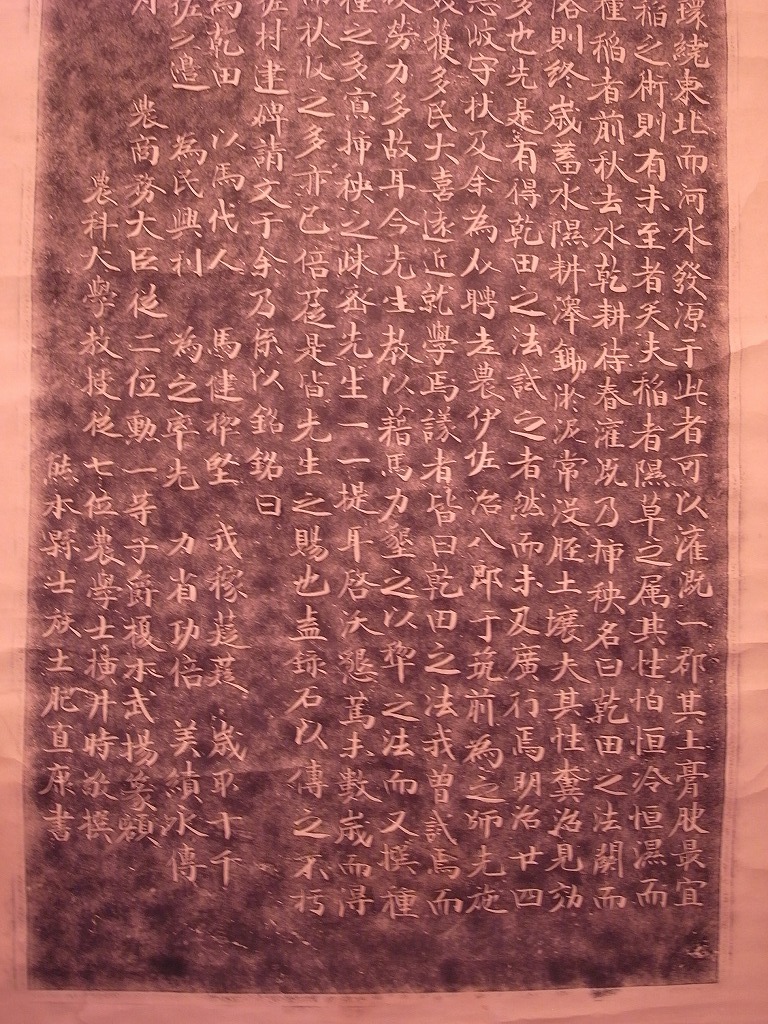 環繞東北而河水發源于此者可以灌漑一郡其土膏腴最宜
稻之術則有未至者矣夫稻者隰草之属其性怕恒冷恒濕而
種稻者前秋去水乾耕待春灌漑乃挿秧名曰乾田之法闢而
則終歳蓄水隰耕澤鋤淤泥常没脛土壌夫其性糞治見効
多也先是有得乾田之法試之者然而未及廣行焉明治廿四
岐守状及余為人聘老農伊佐治八郎于筑前為之師先施
獲多民大喜遠近就學焉議者皆曰乾田之法我曽試焉而
労力多故耳今先生教以藉馬力墾之以犂之法而又撰種
種之多寡挿秧之疎密先生一一提耳啓沃懇篤未数歳而得
秋収之多亦已倍蓰是皆先生之賜也盍録石以傳之不朽
村建碑請文于余乃係以銘銘曰
為乾田 以馬代人 馬健犂堅 我稼蓰蓰 歳取十千
佐之 為民興利 為之率先 力省功倍 美績永傳
農商務大臣従二位勳一等子爵榎本武揚篆額
農科大學教授従七位農學士横井時敬撰
熊本縣士族土肥直康書